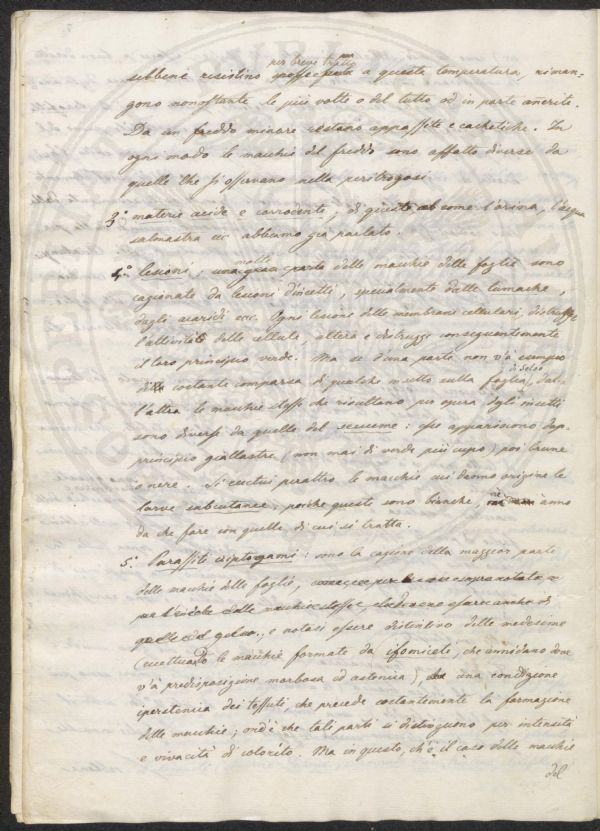 per breve tratto
sebbene resistino a questa temperatura, riman-
gono nonostante le più volte o del tutto od in parte annerite.
Da un freddo minore restano appassite e cachetiche. In
ogni modo le macchie del freddo sono affatto diverse da
quelle che si osservano nella
3.° materie acide e corrodenti, di queste come l'orina, l'acqua
salmastra ecc. abbiamo già parlato.
4.° lesioni; molte parte delle macchie delle foglie sono
cagionate da lesioni d'insetti, specialmente dalle lumache,
dagli acaridi ecc. Ogni lesione delle membrane cellulari, distrugge
l'attività delle cellule, altera e distrugge conseguentemente
il loro principio verde. Ma se d'una parte non v'à esempio
di costante comparsa di qualche insetto sulla foglia di gelso, dal-
l'altra le macchie stesse che risultano per opera degli insetti
sono diverse da quelle del seccume: esse appariscono dap-
principio giallastre (non mai di verde più cupo) poi brune
o nere. Si escluse peraltro le macchie cui danno origine le
larve subcutanee, poichè queste sono bianche, nè anno
da che fare con quelle di cui si tratta.
5.° Parassiti criptogami: sono la cagione della maggior parte
delle macchie delle foglie, come
per l'indole delle macchie stesse
quelle del gelso, e notasi essere distintivo delle medesime
(eccettuando le macchie formate da ifomiceti, che annidano dove
v'à predisposizione morbosa ed astenica), una condizione
iperstenica dei tessuti, che precede costantemente la formazione
delle macchie; ond'è che tali parti si distinguono per intensità
e vivacità di colorito. Ma in questo, ch'è il caso delle macchie
del